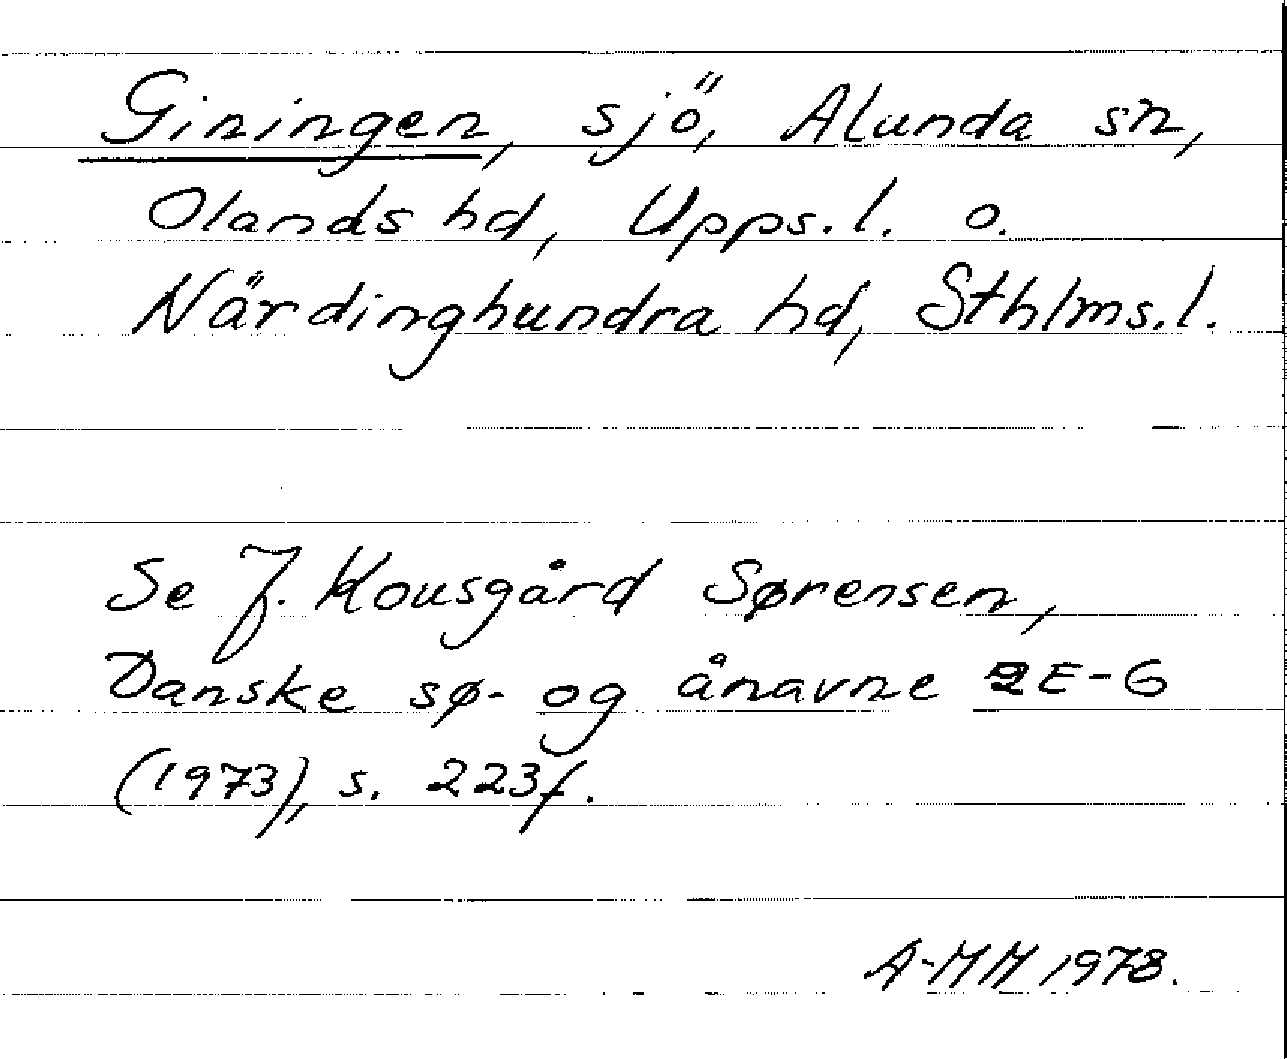 Giningen, sjö, Alunda sn,
Olands hd, Upps.l. o.
Närdinghundra hd, Sthlms.l.
Se J. Kousgård Sørensen,
Danske sø- og ånavne 2 E-G
(1973), s. 223f.
A-MM 1978.